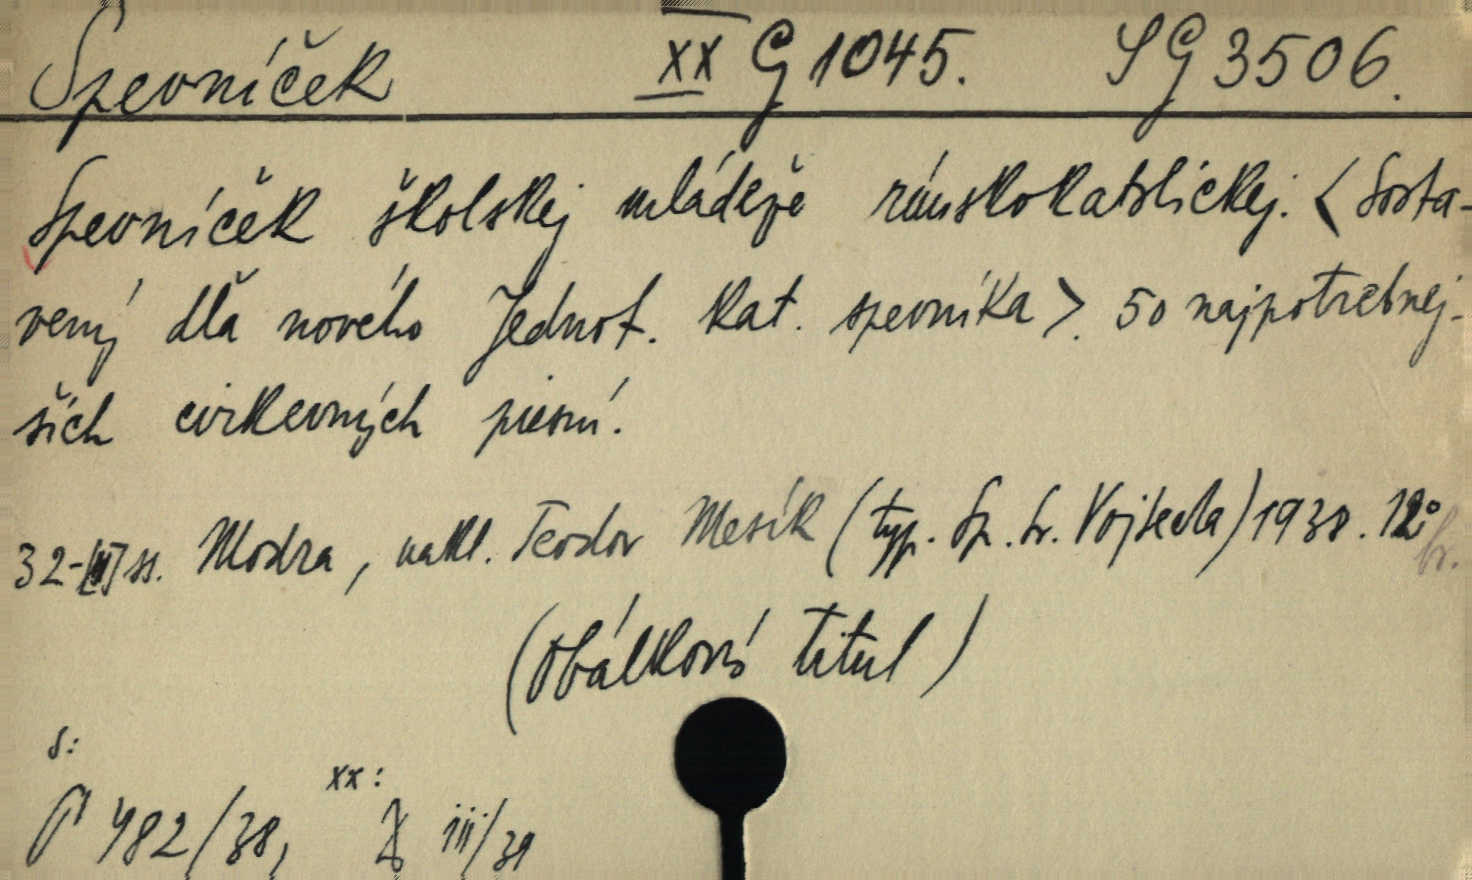 Spevníček XX G 1045. SG 3506.
Spevníček školskej mládeže rímskokatolíckej. < Sosta-
vený dľa nového Jednot. kat. spevníka >. 50 najpotrebnej-
ších cirkevných piesní.
32- ss. Modra, nakl. Teodor Mesík (typ. Sp. sv. Vojtecha) 1938. 12°
br.
(Obálkový titul)
S:
XX:
P 482/38, iii/39